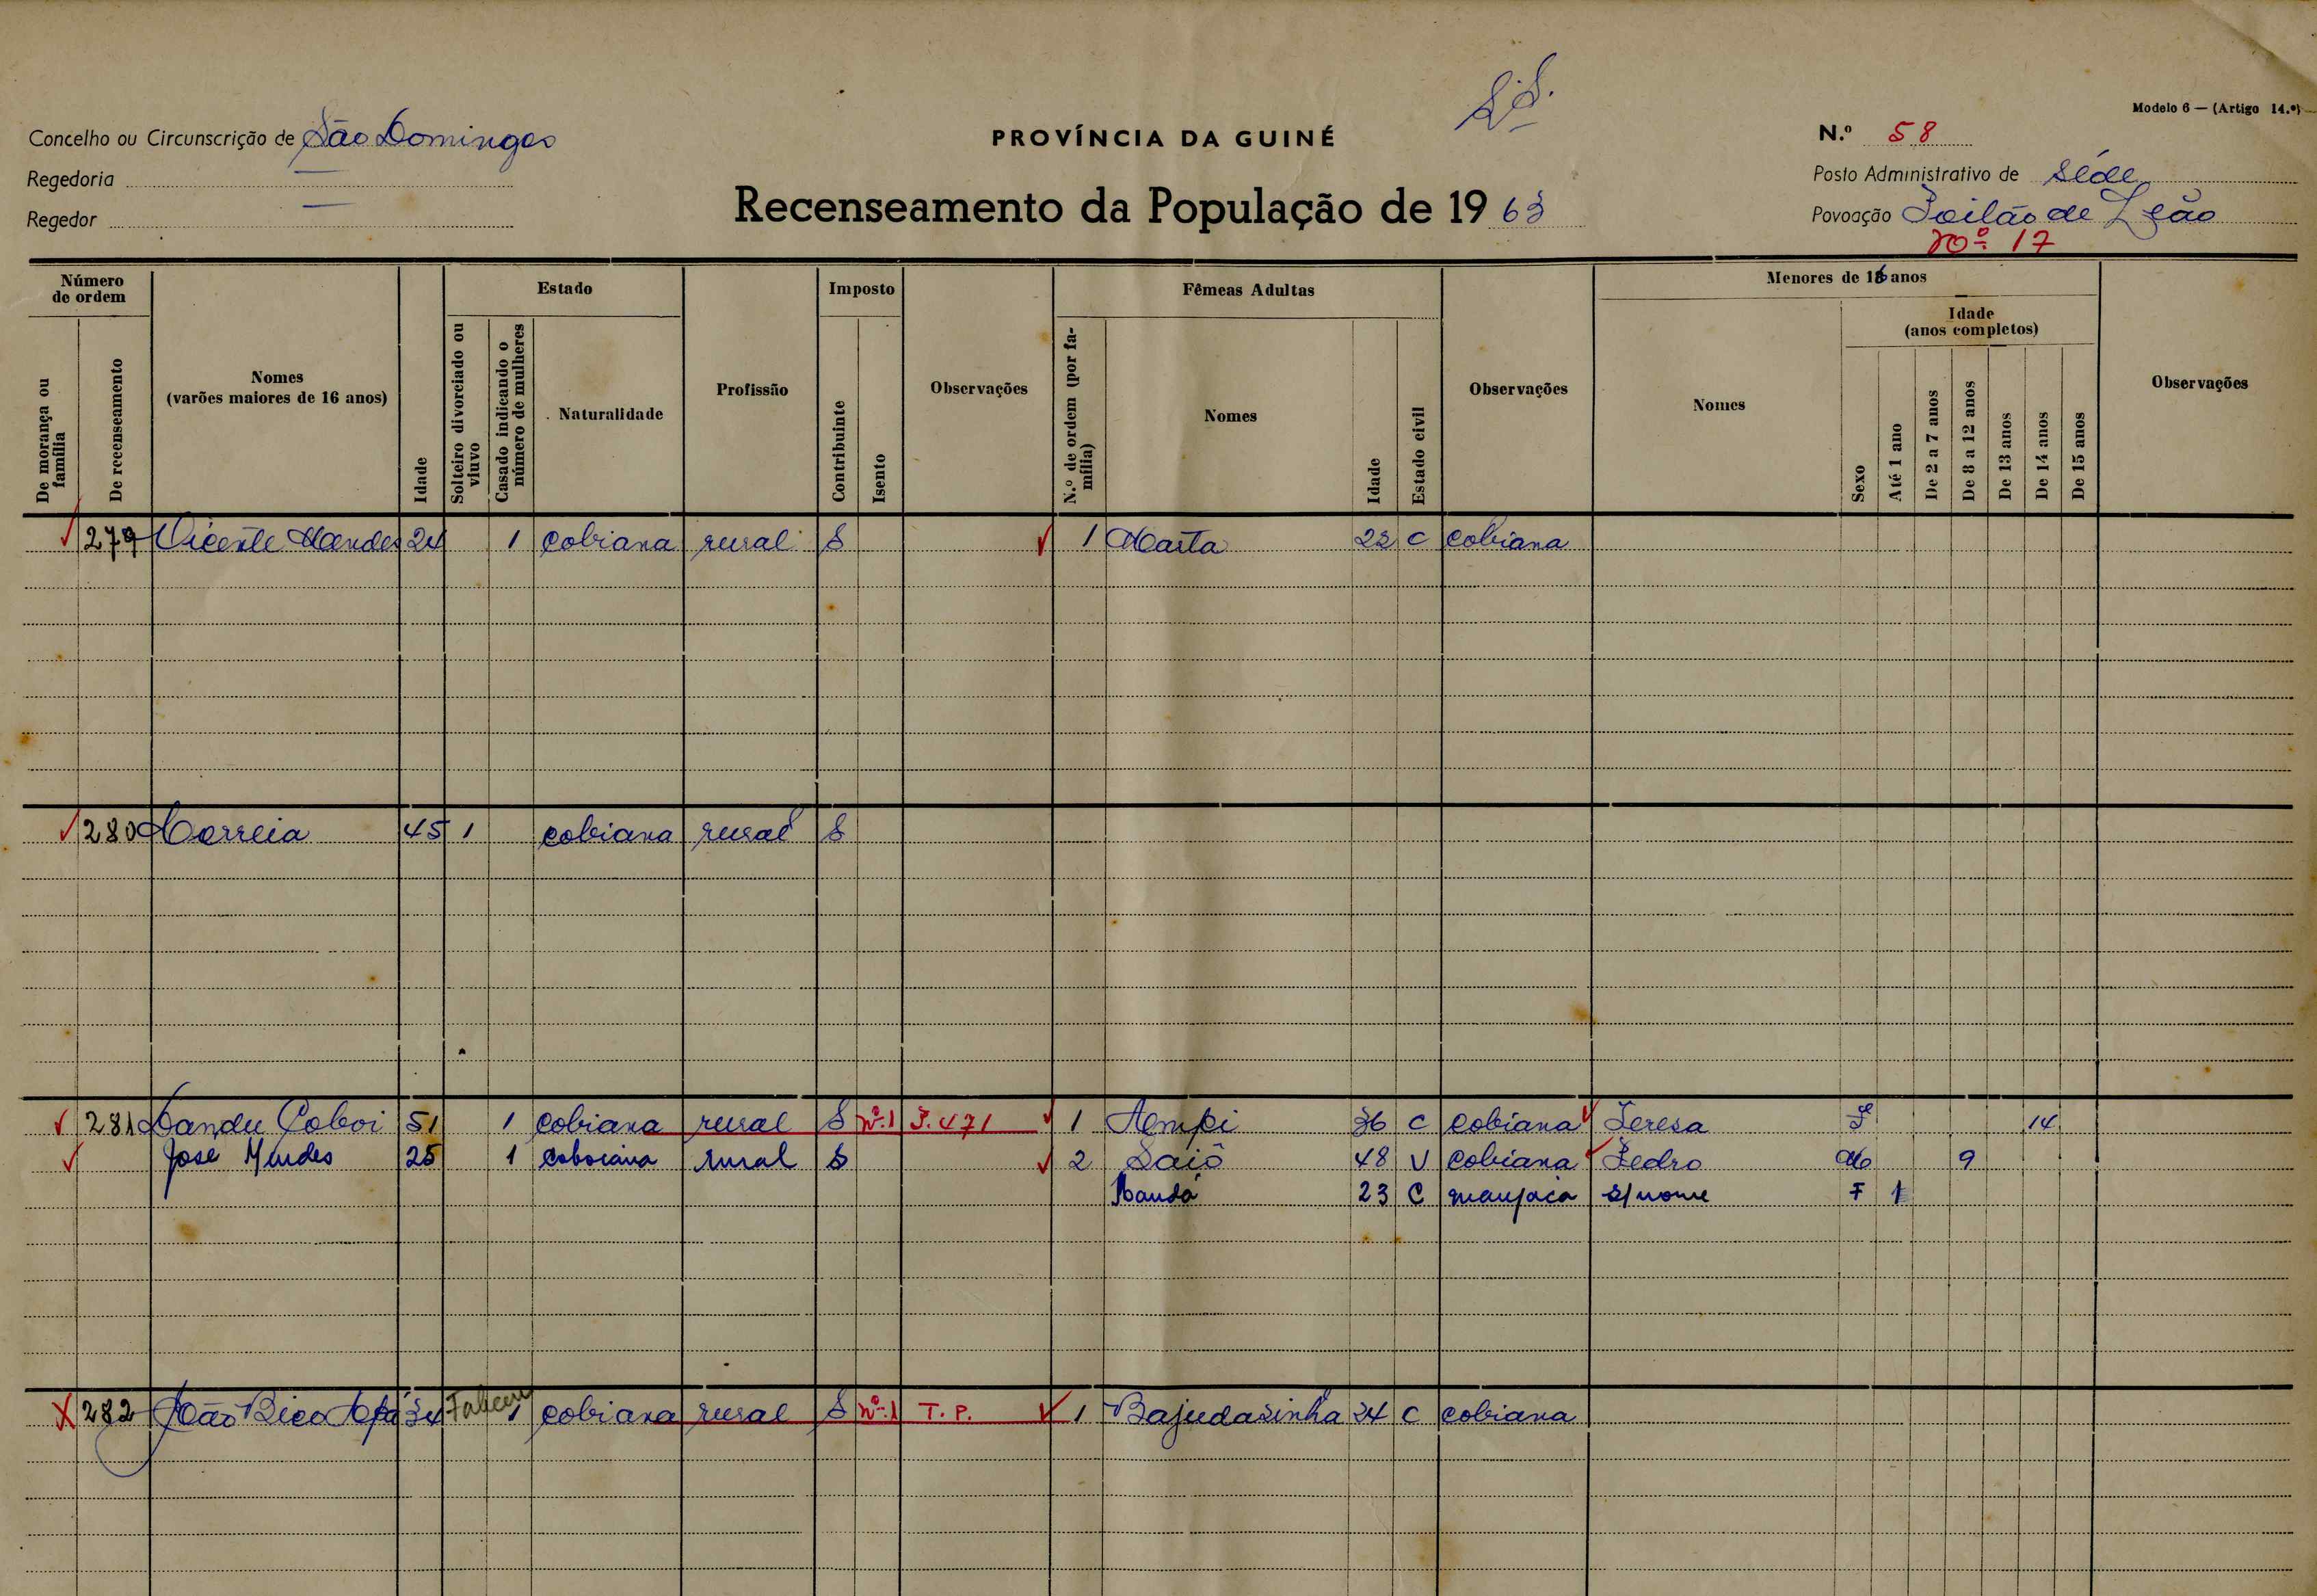 Modelo 6 — (Artigo 14.º)
Concelho ou Circunscrição de São Domingos
PROVÍNCIA DA GUINÉ
N.º 58
Regedoria —
Posto Administrativo de Séde
Regedor —
Recenseamento da População de 1963
Povoação Poilão de Leão
nº 17
Número de ordem
Estado
Imposto
Fêmeas Adultas
Menores de 16 anos
Idade (anos completos)
De morança ou família
De recenseamento
Nomes (varões maiores de 16 anos)
Idade
Solteiro divorciado ou viuvo
Casado indicando o número de mulheres
Naturalidade
Profissão
Contribuinte
Isento
Observações
N.º de ordem (por família)
Nomes
Idade
Estado civil
Observações
Nomes
Sexo
Até 1 ano
De 2 a 7 anos
De 8 a 12 anos
De 13 anos
De 14 anos
De 15 anos
Observações
279 Vicente Mendes 24 1 cobiana rural S 1 Marta 22 C cobiana
280 Correia 45 1 cobiana rural S
281 Coboi 51 1 cobiana rural S nº1 471 1 36 C cobiana Teresa F 14
José Mendes 25 1 coboiana rural S 2 Saiô 48 V cobiana Pedro M 9
23 C manjaca s/nome F 1
282 João Bico 34 1 cobiana rural S nº1 T.P. 1 Bajudasinha 24 C cobiana